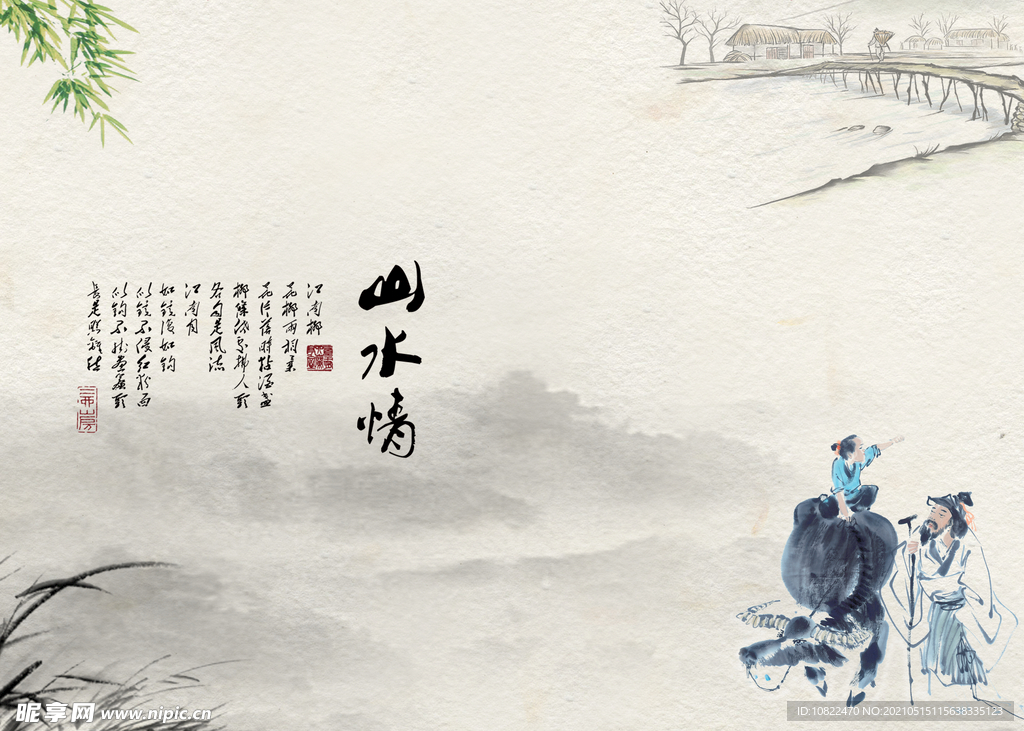 山水情
江南柳
花柳兩相柔
花片落時粘酒盞
柳條低處拂人頭
各自是風流
江南月
如鏡復如鉤
似鏡不侵紅粉面
似鉤不掛畫簾頭
長是照離愁
昵享网 www.nipic.cn
ID:10822470 NO:20210515115638335123